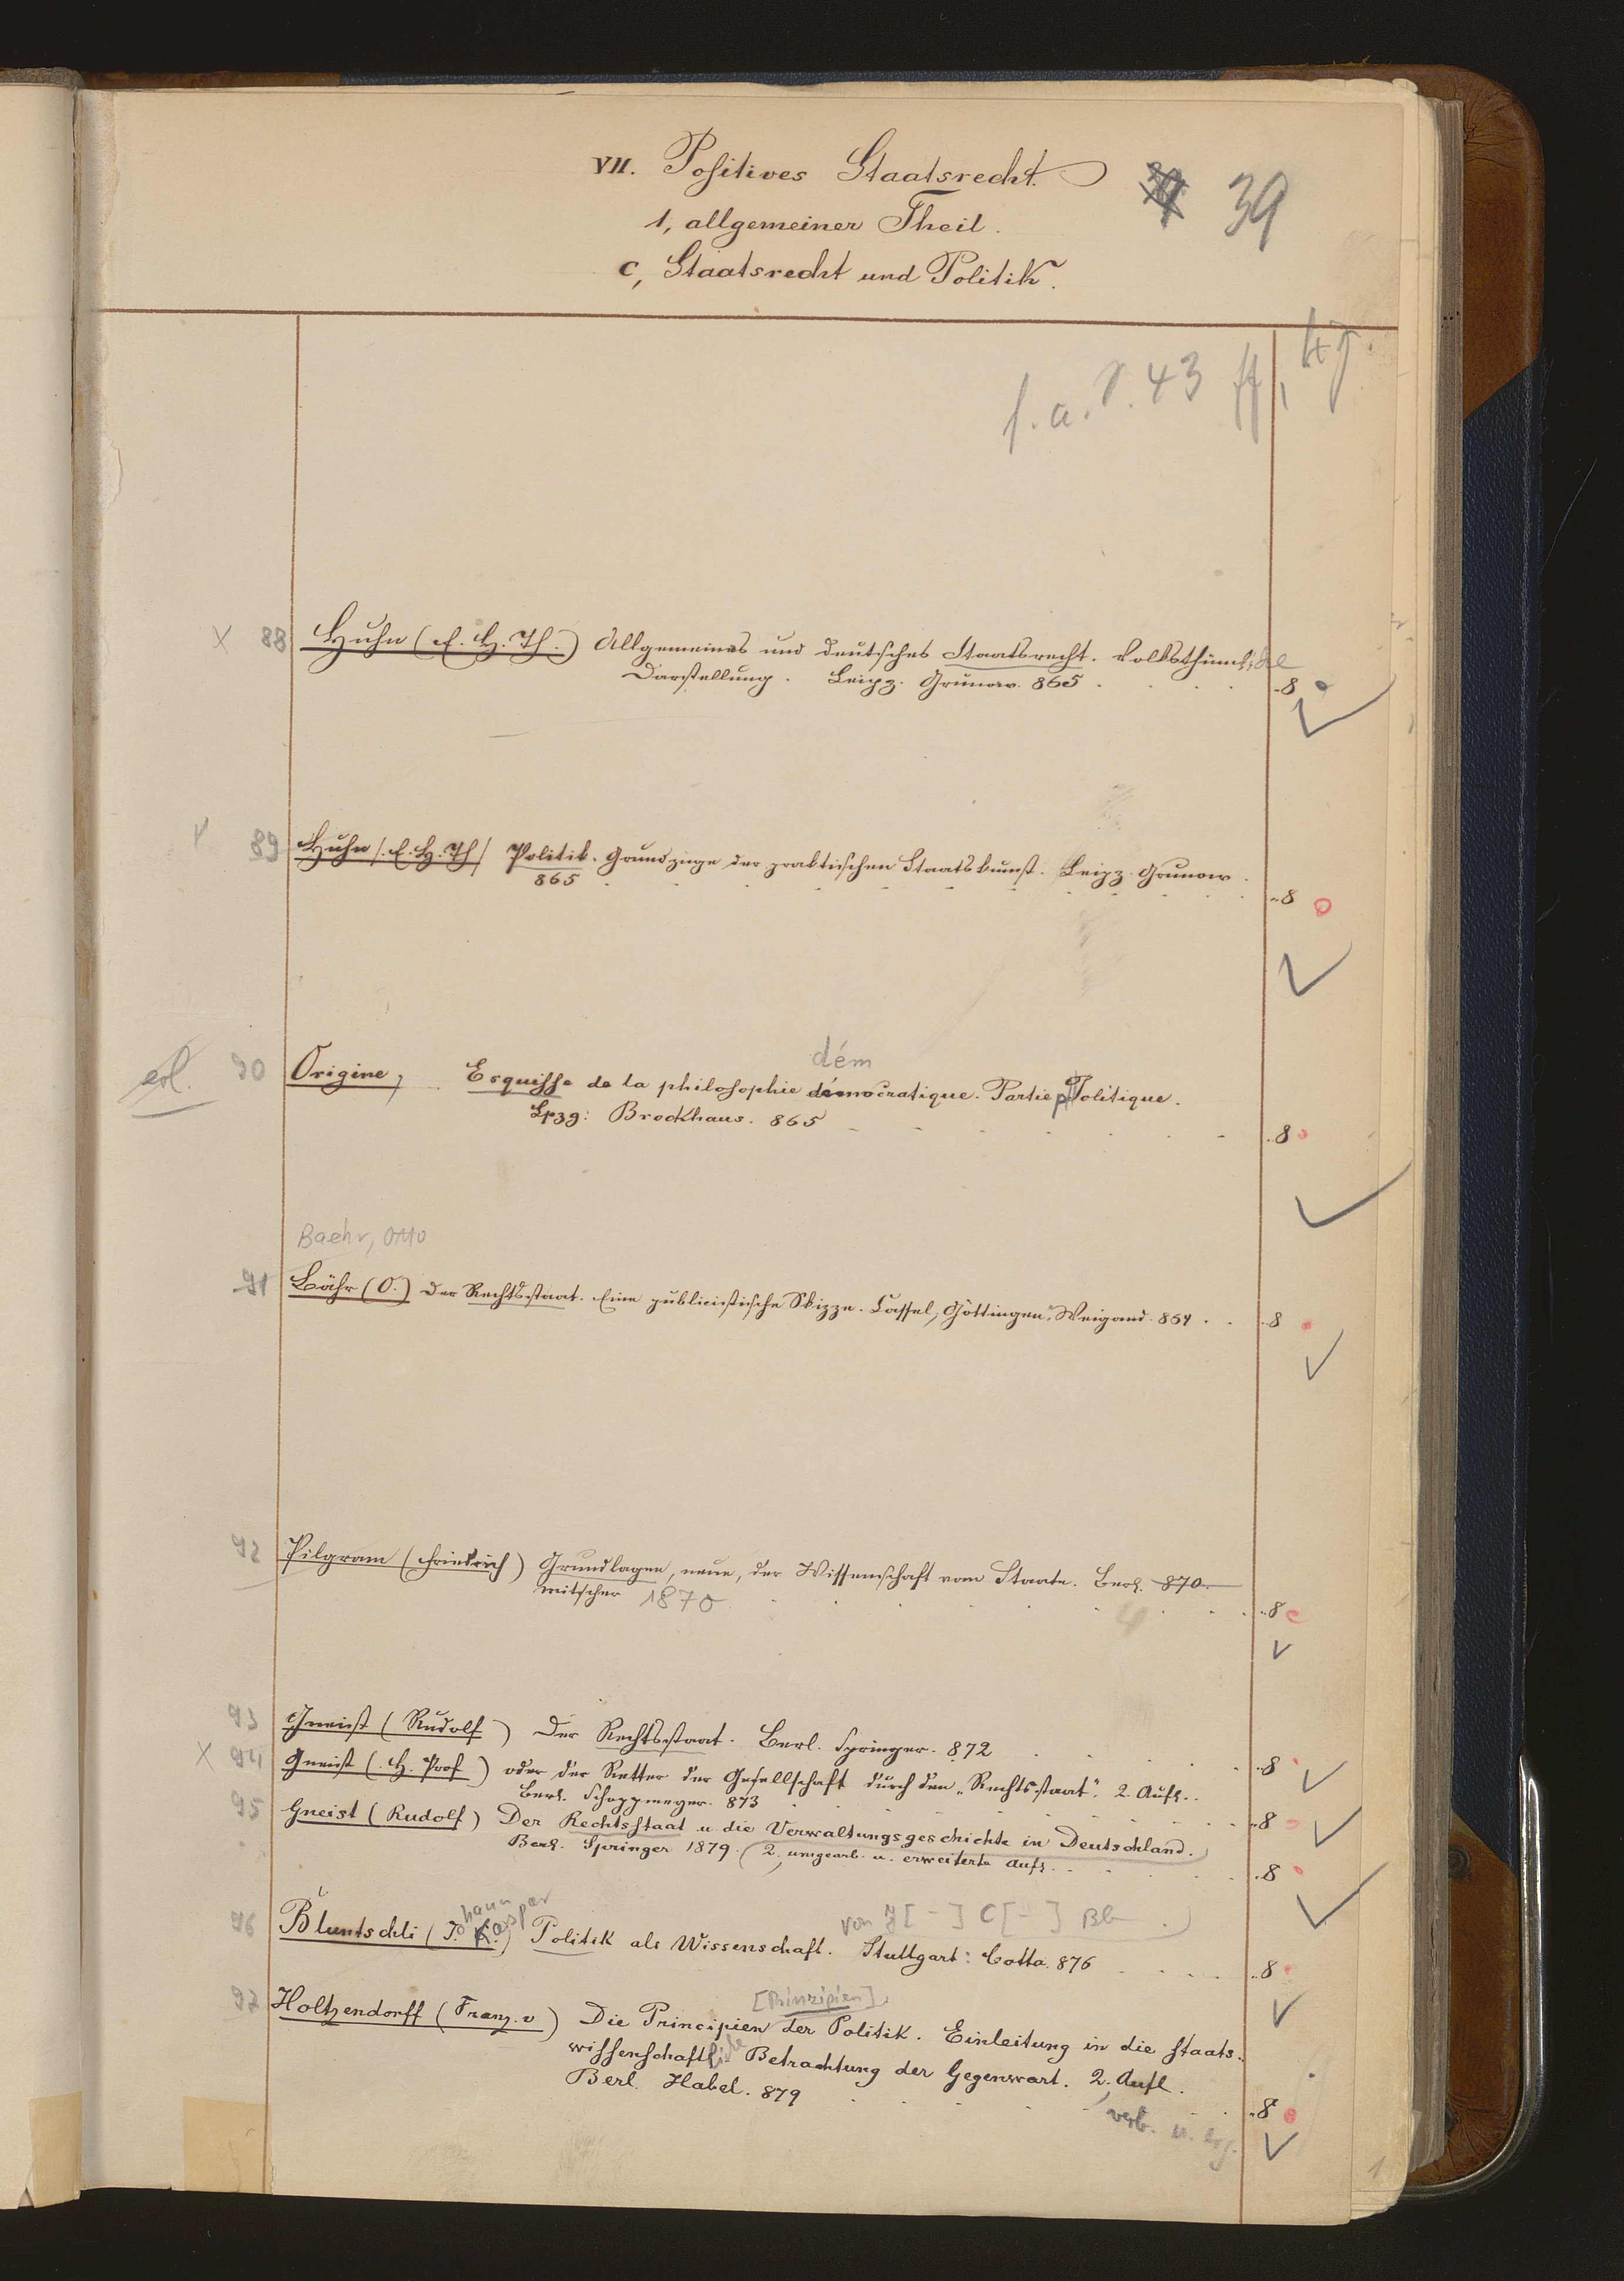 VII. Positives Staatsrecht. 39
1, allgemeiner Theil.
c, Staatsrecht und Politik.
s. a. S. 43 ff,
88 Huhn (E. H. Th.) Allgemeines und deutsches Staatsrecht. Volksthümliche
Darstellung. Leipz. Grunow. 865 . . . . 8
89 Huhn (E. H. Th) Politik. Grundzüge der praktischen Staatskunst. Leipz. Grunow.
865 . . . . 8
dém
erl. 90 Origine, Esquisse de la philosophie démocratique. Partie politique.
Lpzg: Brockhaus. 865 . . . . 8
Baehr, Otto
91 Bähr (O.) Der Rechtsstaat. Eine publicistische Skizze. Cassel, Göttingen, Weigand. 864 . . 8
92 Pilgram (Friedrich) Grundlagen, neue, der Wissenschaft vom Staate. Berl. 870.
Mitscher 1870 . . . . 8
93 Gneist (Rudolf) Der Rechtsstaat. Berl. Springer. 872 . . . . 8
94 Gneist (H. Prof) oder der Retter der Gesellschaft durch den „Rechtsstaat“. 2. Aufl..
Berl. Schoppmeyer. 873 . . . . 8
95 Gneist (Rudolf) Der Rechtsstaat u. die Verwaltungsgeschichte in Deutschland.
Berl. Springer 1879. (2, umgearb. u. erweiterte Aufl. . . . . 8
hann aspar von J[-] C[-] Bl .)
96 Bluntschli (Jo. K.) Politik als Wissenschaft. Stuttgart: Cotta. 876 . . . . 8
[Prinzipien]
97 Holtzendorff (Franz. v) Die Principien der Politik. Einleitung in die staats-
wissenschaftliche Betrachtung der Gegenwart. 2. Aufl.
Berl. Habel. 879 . . . . 8
verb. u. erg.
1